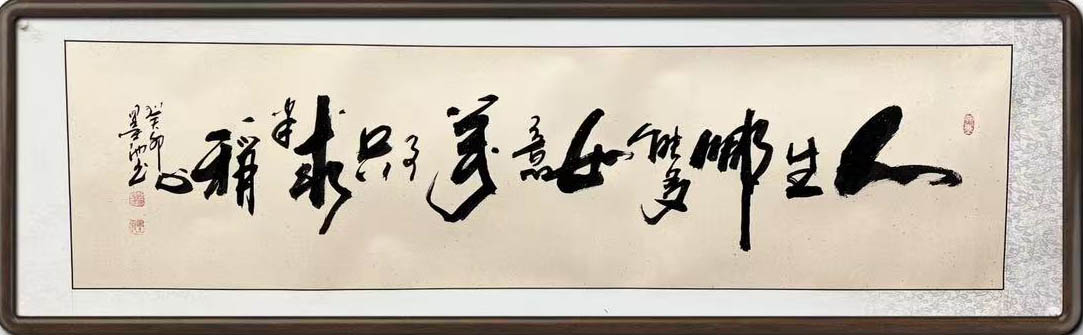 人生哪能多如意萬事只求半稱心
癸卯
墨池书